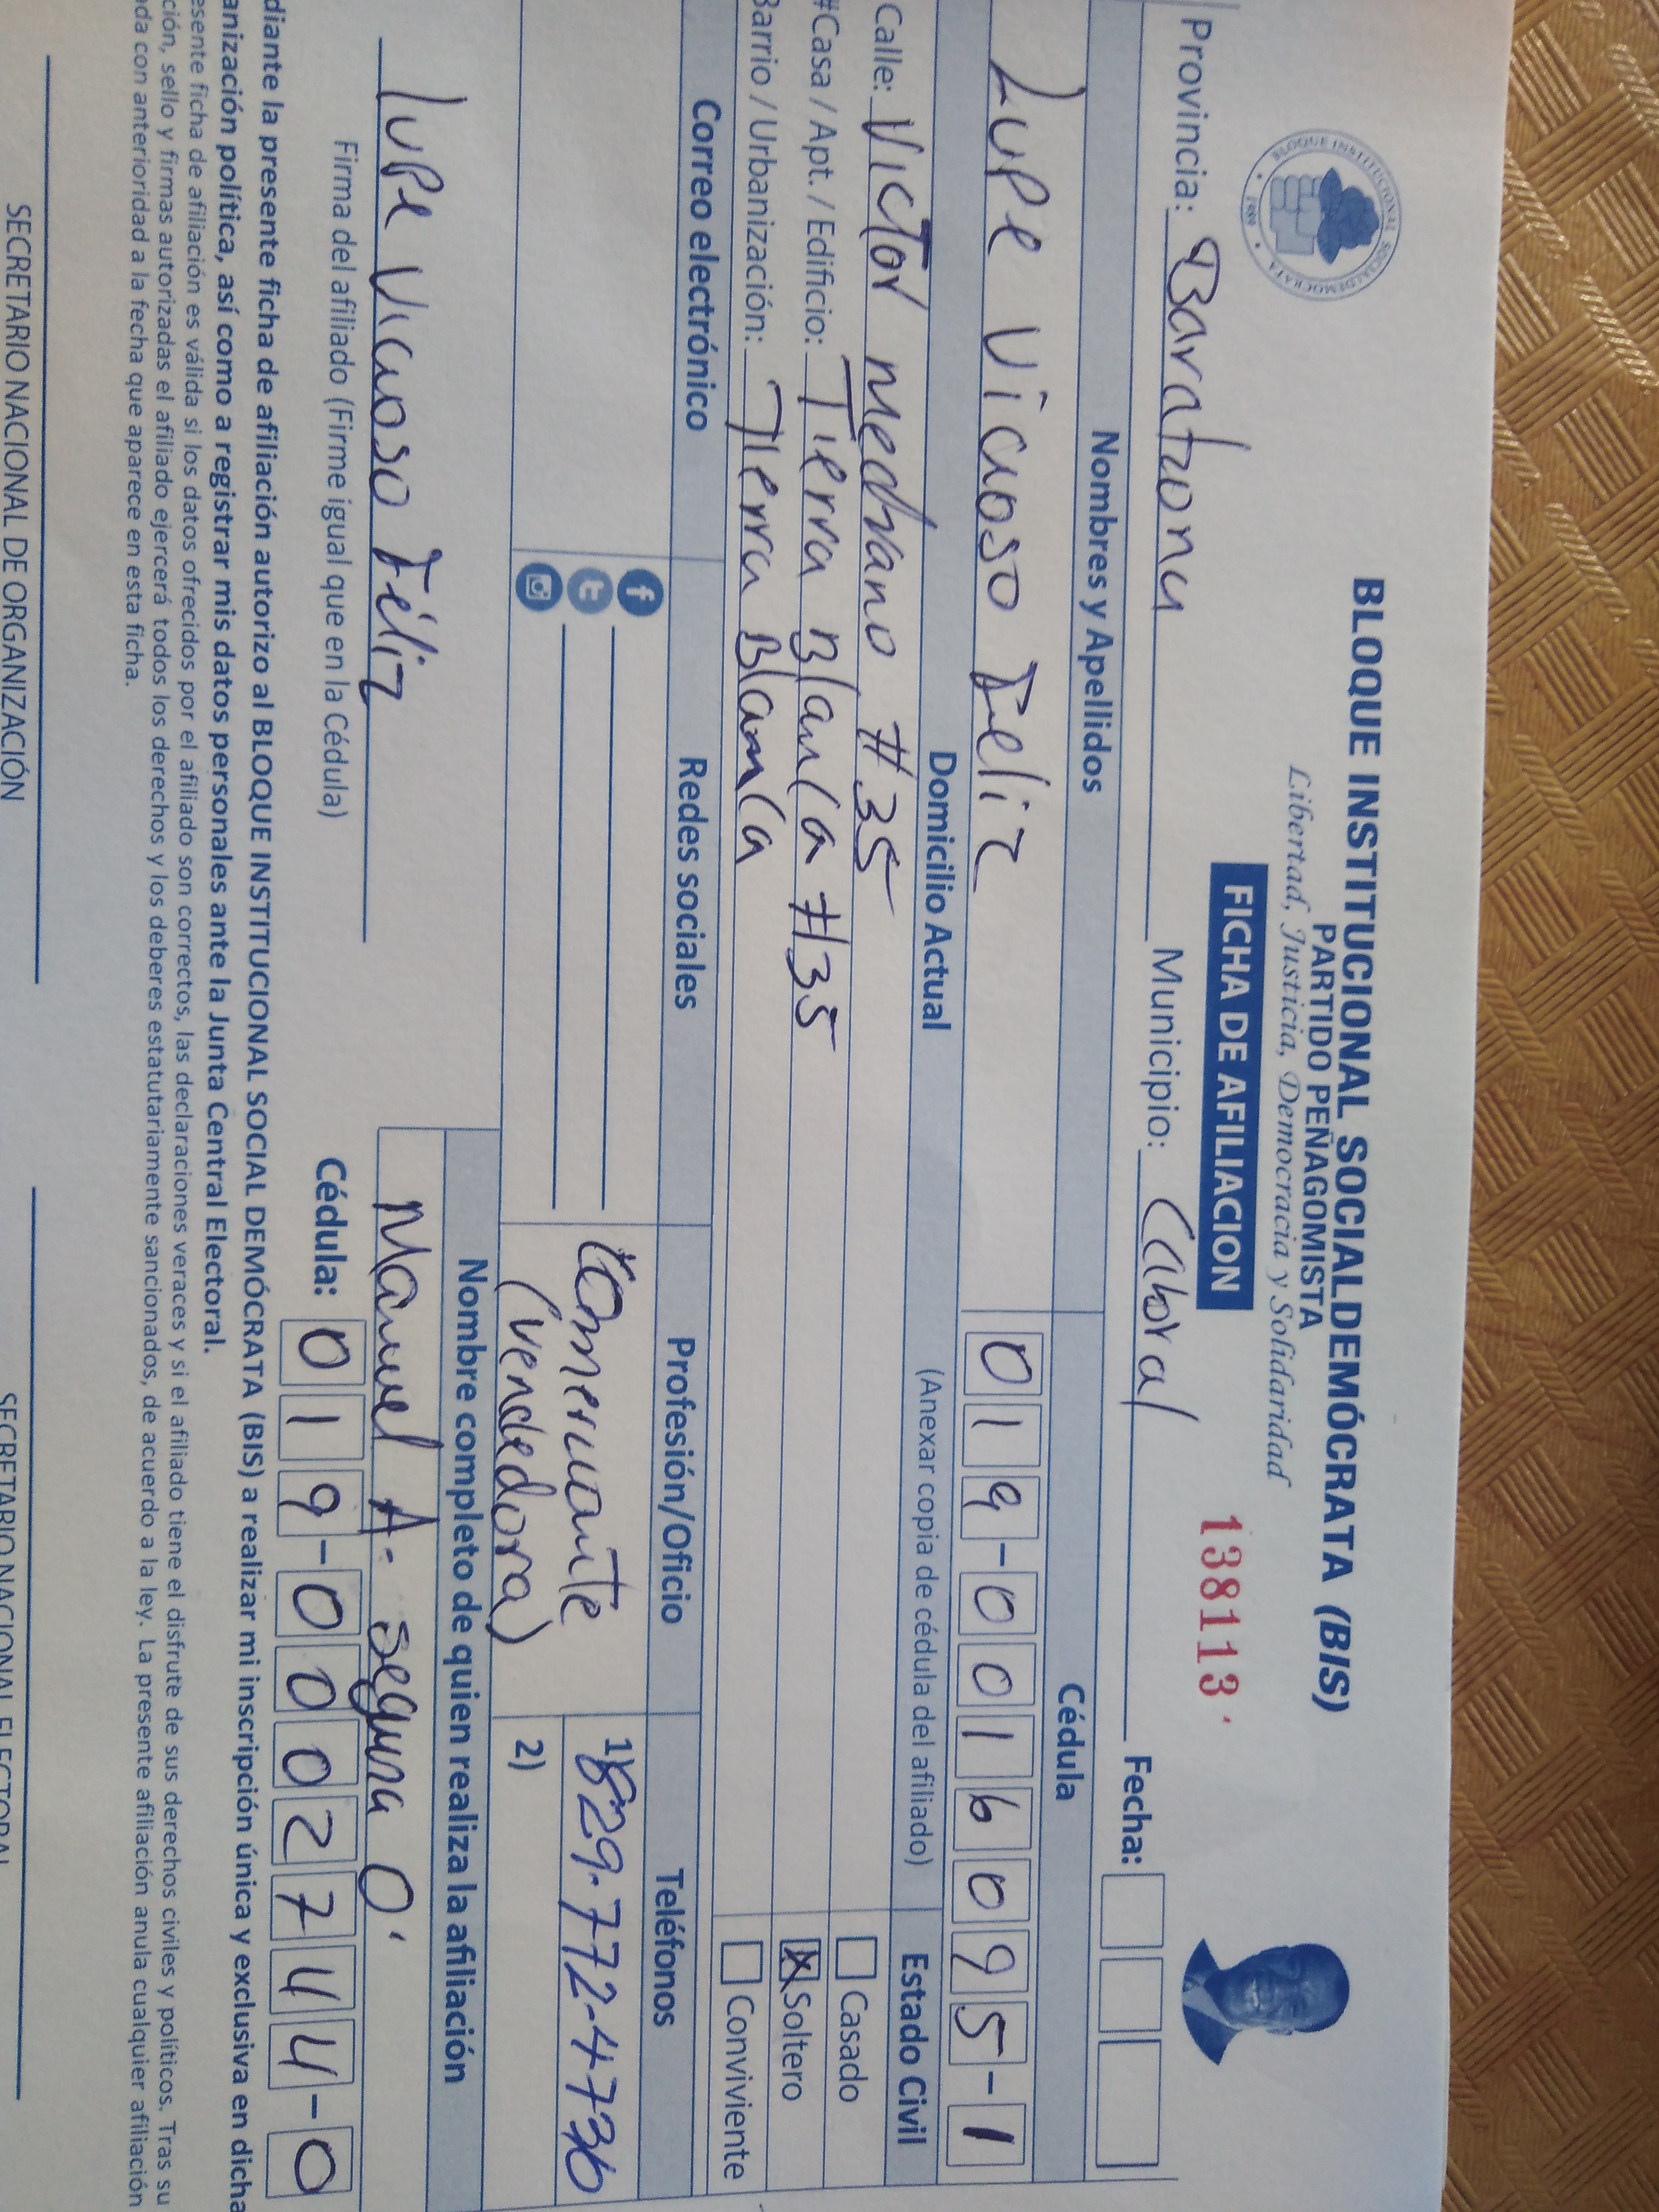 BLOQUE INSTITUCIONAL SOCIALDEMÓCRATA (BIS)
PARTIDO PEÑAGOMISTA
Libertad, Justicia, Democracia y Solidaridad
BLOQUE INSTITUCIONAL SOCIALDEMOCRATA
1989
FICHA DE AFILIACION
138113
Provincia: Barahona Municipio: Cabral Fecha:
Nombres y Apellidos Cédula
Lupe Vicioso Feliz 019-0016095-1
Domicilio Actual (Anexar copia de cédula del afiliado) Estado Civil
Calle: Victor medrano #35 Casado
#Casa / Apt. / Edificio: Tierra Blanca #35 X Soltero
Barrio / Urbanización: Tierra Blanca Conviviente
Correo electrónico Redes sociales Profesión/Oficio Teléfonos
Comerciante 1) 829-772-4736
(vendedora) 2)
Nombre completo de quien realiza la afiliación
Lupe Vicioso Féliz Manuel A. segura O.
Firma del afiliado (Firme igual que en la Cédula) Cédula: 019-0002744-0
diante la presente ficha de afiliación autorizo al BLOQUE INSTITUCIONAL SOCIAL DEMÓCRATA (BIS) a realizar mi inscripción única y exclusiva en dicha
anización política, así como a registrar mis datos personales ante la Junta Central Electoral.
esente ficha de afiliación es válida si los datos ofrecidos por el afiliado son correctos, las declaraciones veraces y si el afiliado tiene el disfrute de sus derechos civiles y políticos. Tras su
ción, sello y firmas autorizadas el afiliado ejercerá todos los derechos y los deberes estatutariamente sancionados, de acuerdo a la ley. La presente afiliación anula cualquier afiliación
da con anterioridad a la fecha que aparece en esta ficha.
SECRETARIO NACIONAL DE ORGANIZACIÓN SECRETARIO NACIONAL ELECTORAL